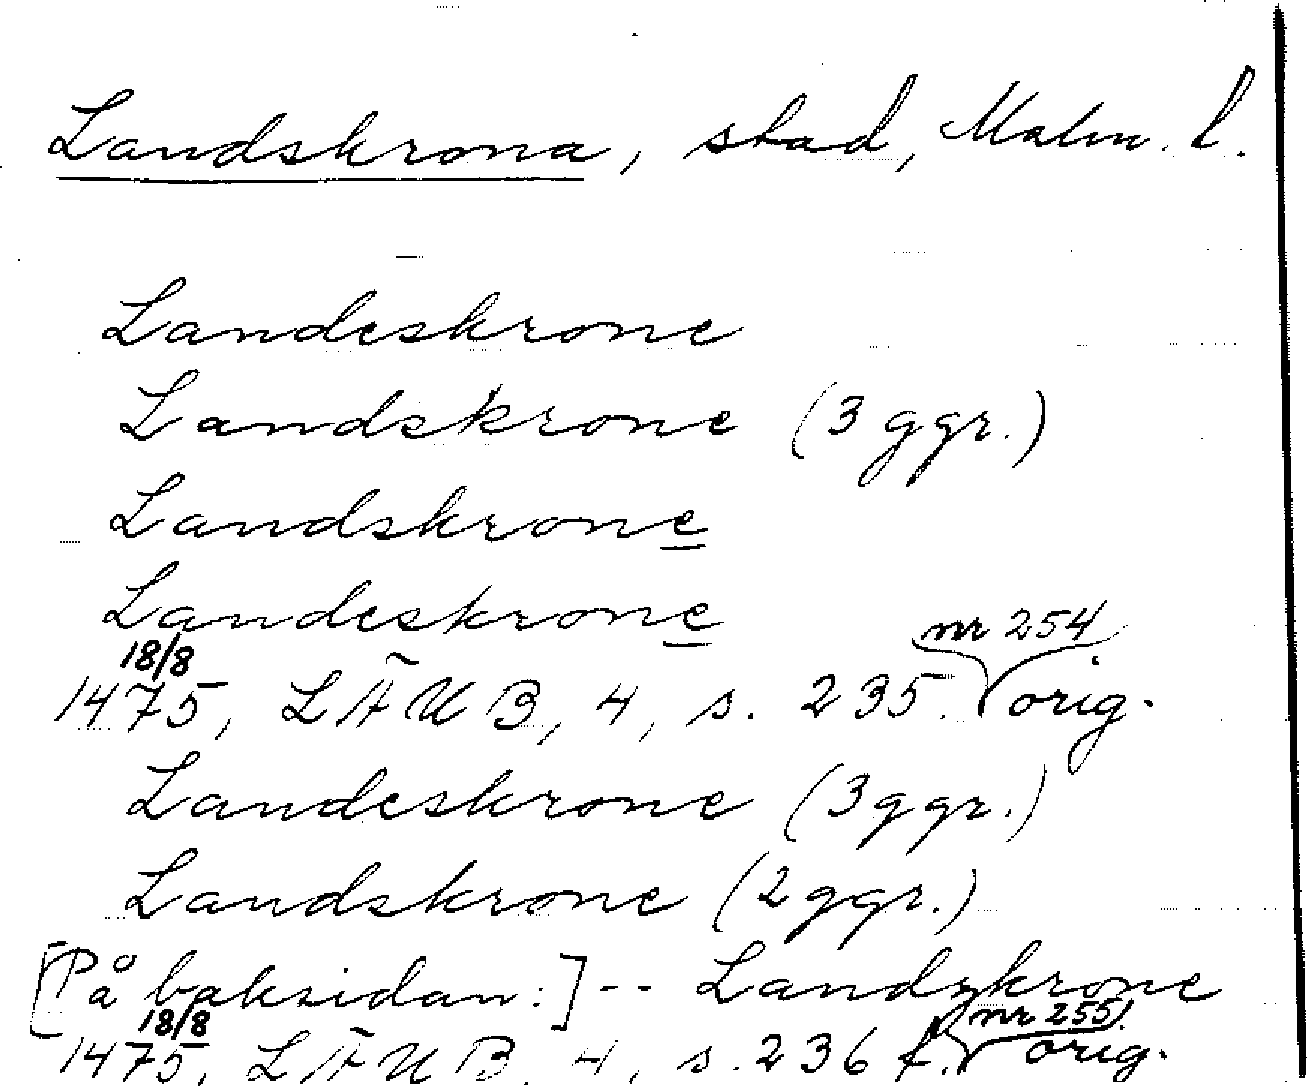 Landskrona, stad, Malm. l.
Landeskrone
Landskrone (3 ggr.)
Landskrone
Landeskrone
18/8 nr 254
1475, LÄUB, 4, s. 235. orig.
Landeskrone (3 ggr.)
Landskrone (2 ggr.)
[På baksidan:] -- Landzkrone
18/8 nr 255
1475, LÄUB, 4, s. 236 f. orig.